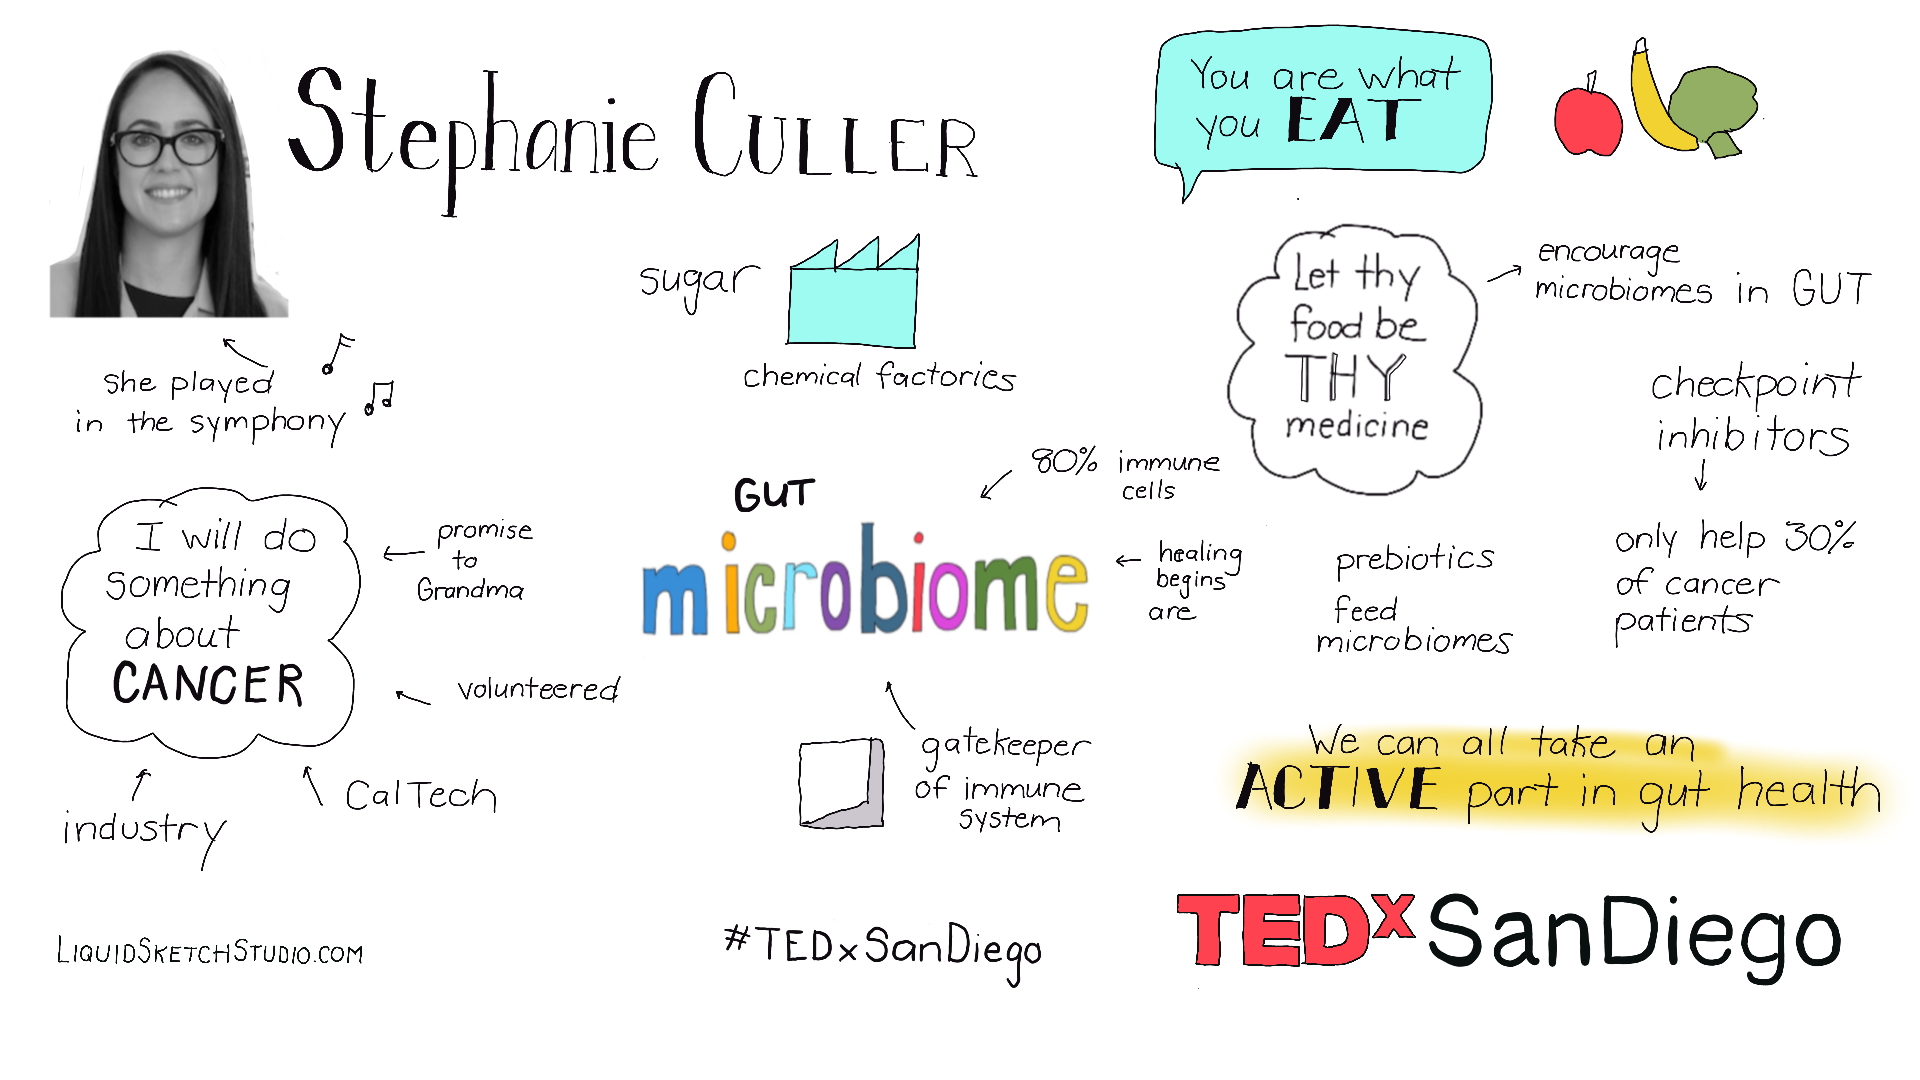 Stephanie CULLER
she played
in the symphony
I will do
something
about
CANCER
promise
to
Grandma
volunteered
CalTech
industry
LIQUIDSKETCHSTUDIO.COM
sugar
chemical factories
GUT
microbiome
80% immune
cells
healing
begins
are
gatekeeper
of immune
system
#TEDxSanDiego
You are what
you EAT
Let thy
food be
THY
medicine
encourage
microbiomes in GUT
checkpoint
inhibitors
only help 30%
of cancer
patients
prebiotics
feed
microbiomes
We can all take an
ACTIVE part in gut health
TEDx SanDiego